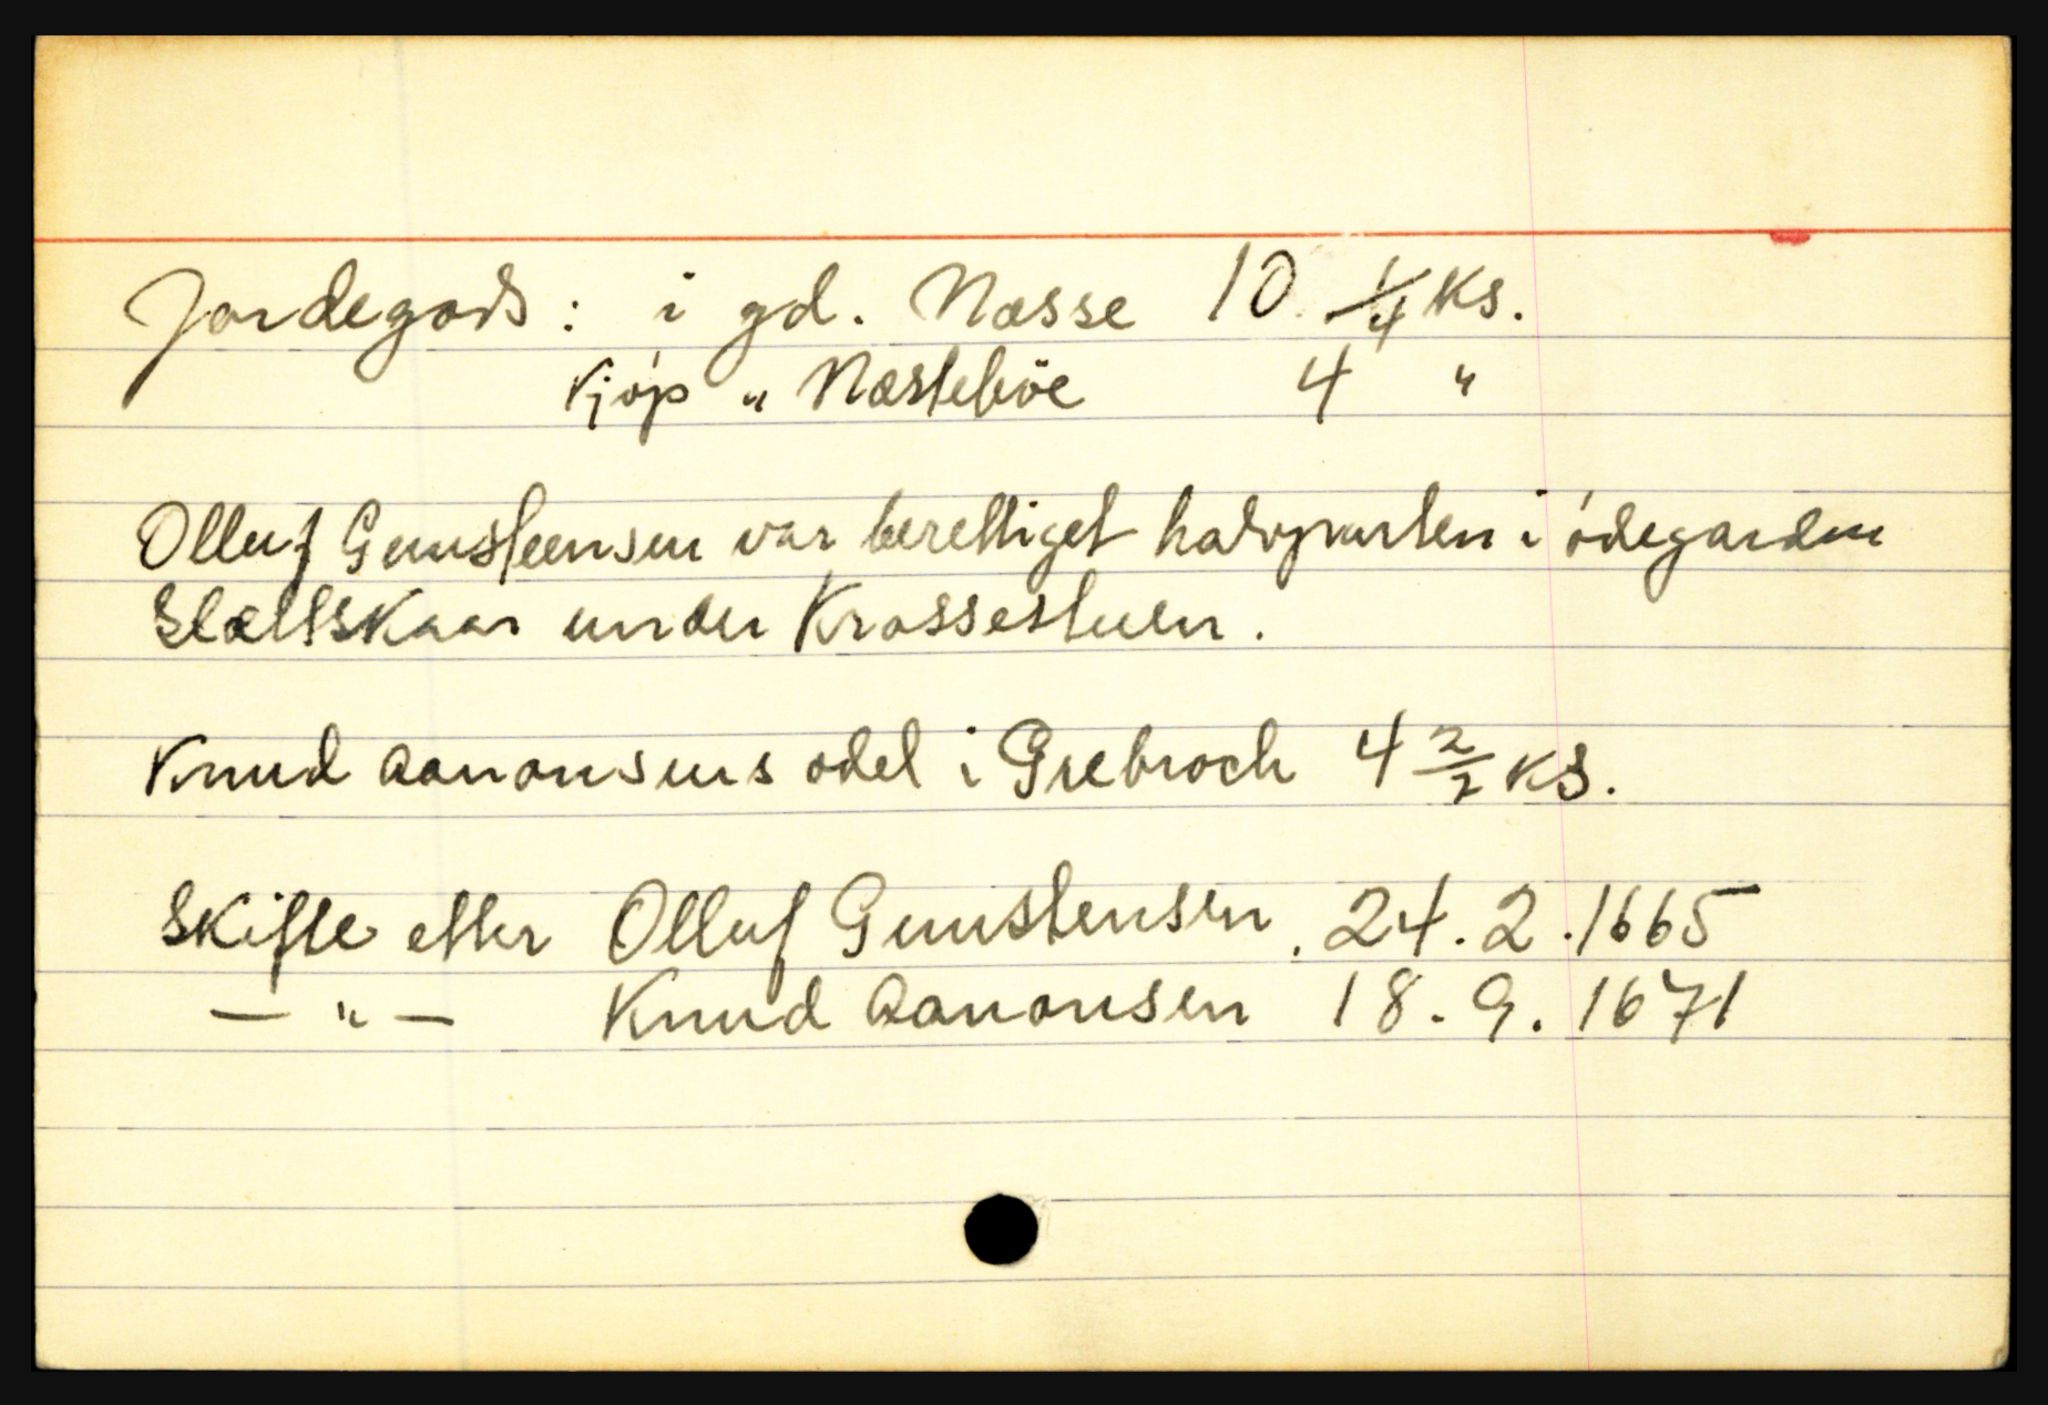 Jordegods: i gd. Næsse 10 1/4 ks.
kjóp " Næsteböe 4 "
Olluf Gunsteensen var berettiget halvparten i ódegarden
Slættskaar under Krossestuen.
Knud Aanonsens odel i Grebroch 4 2/2 ks.
Skifte etter Olluf Gunstensen. 24.2.1665
— " — Knud Aanonsen 18.9.1671